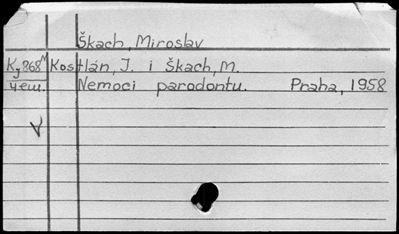 Škach, Miroslav
Kj 868 M Kostlán, J. i Škach, M.
чеш. Nemoci parodontu. Praha, 1958